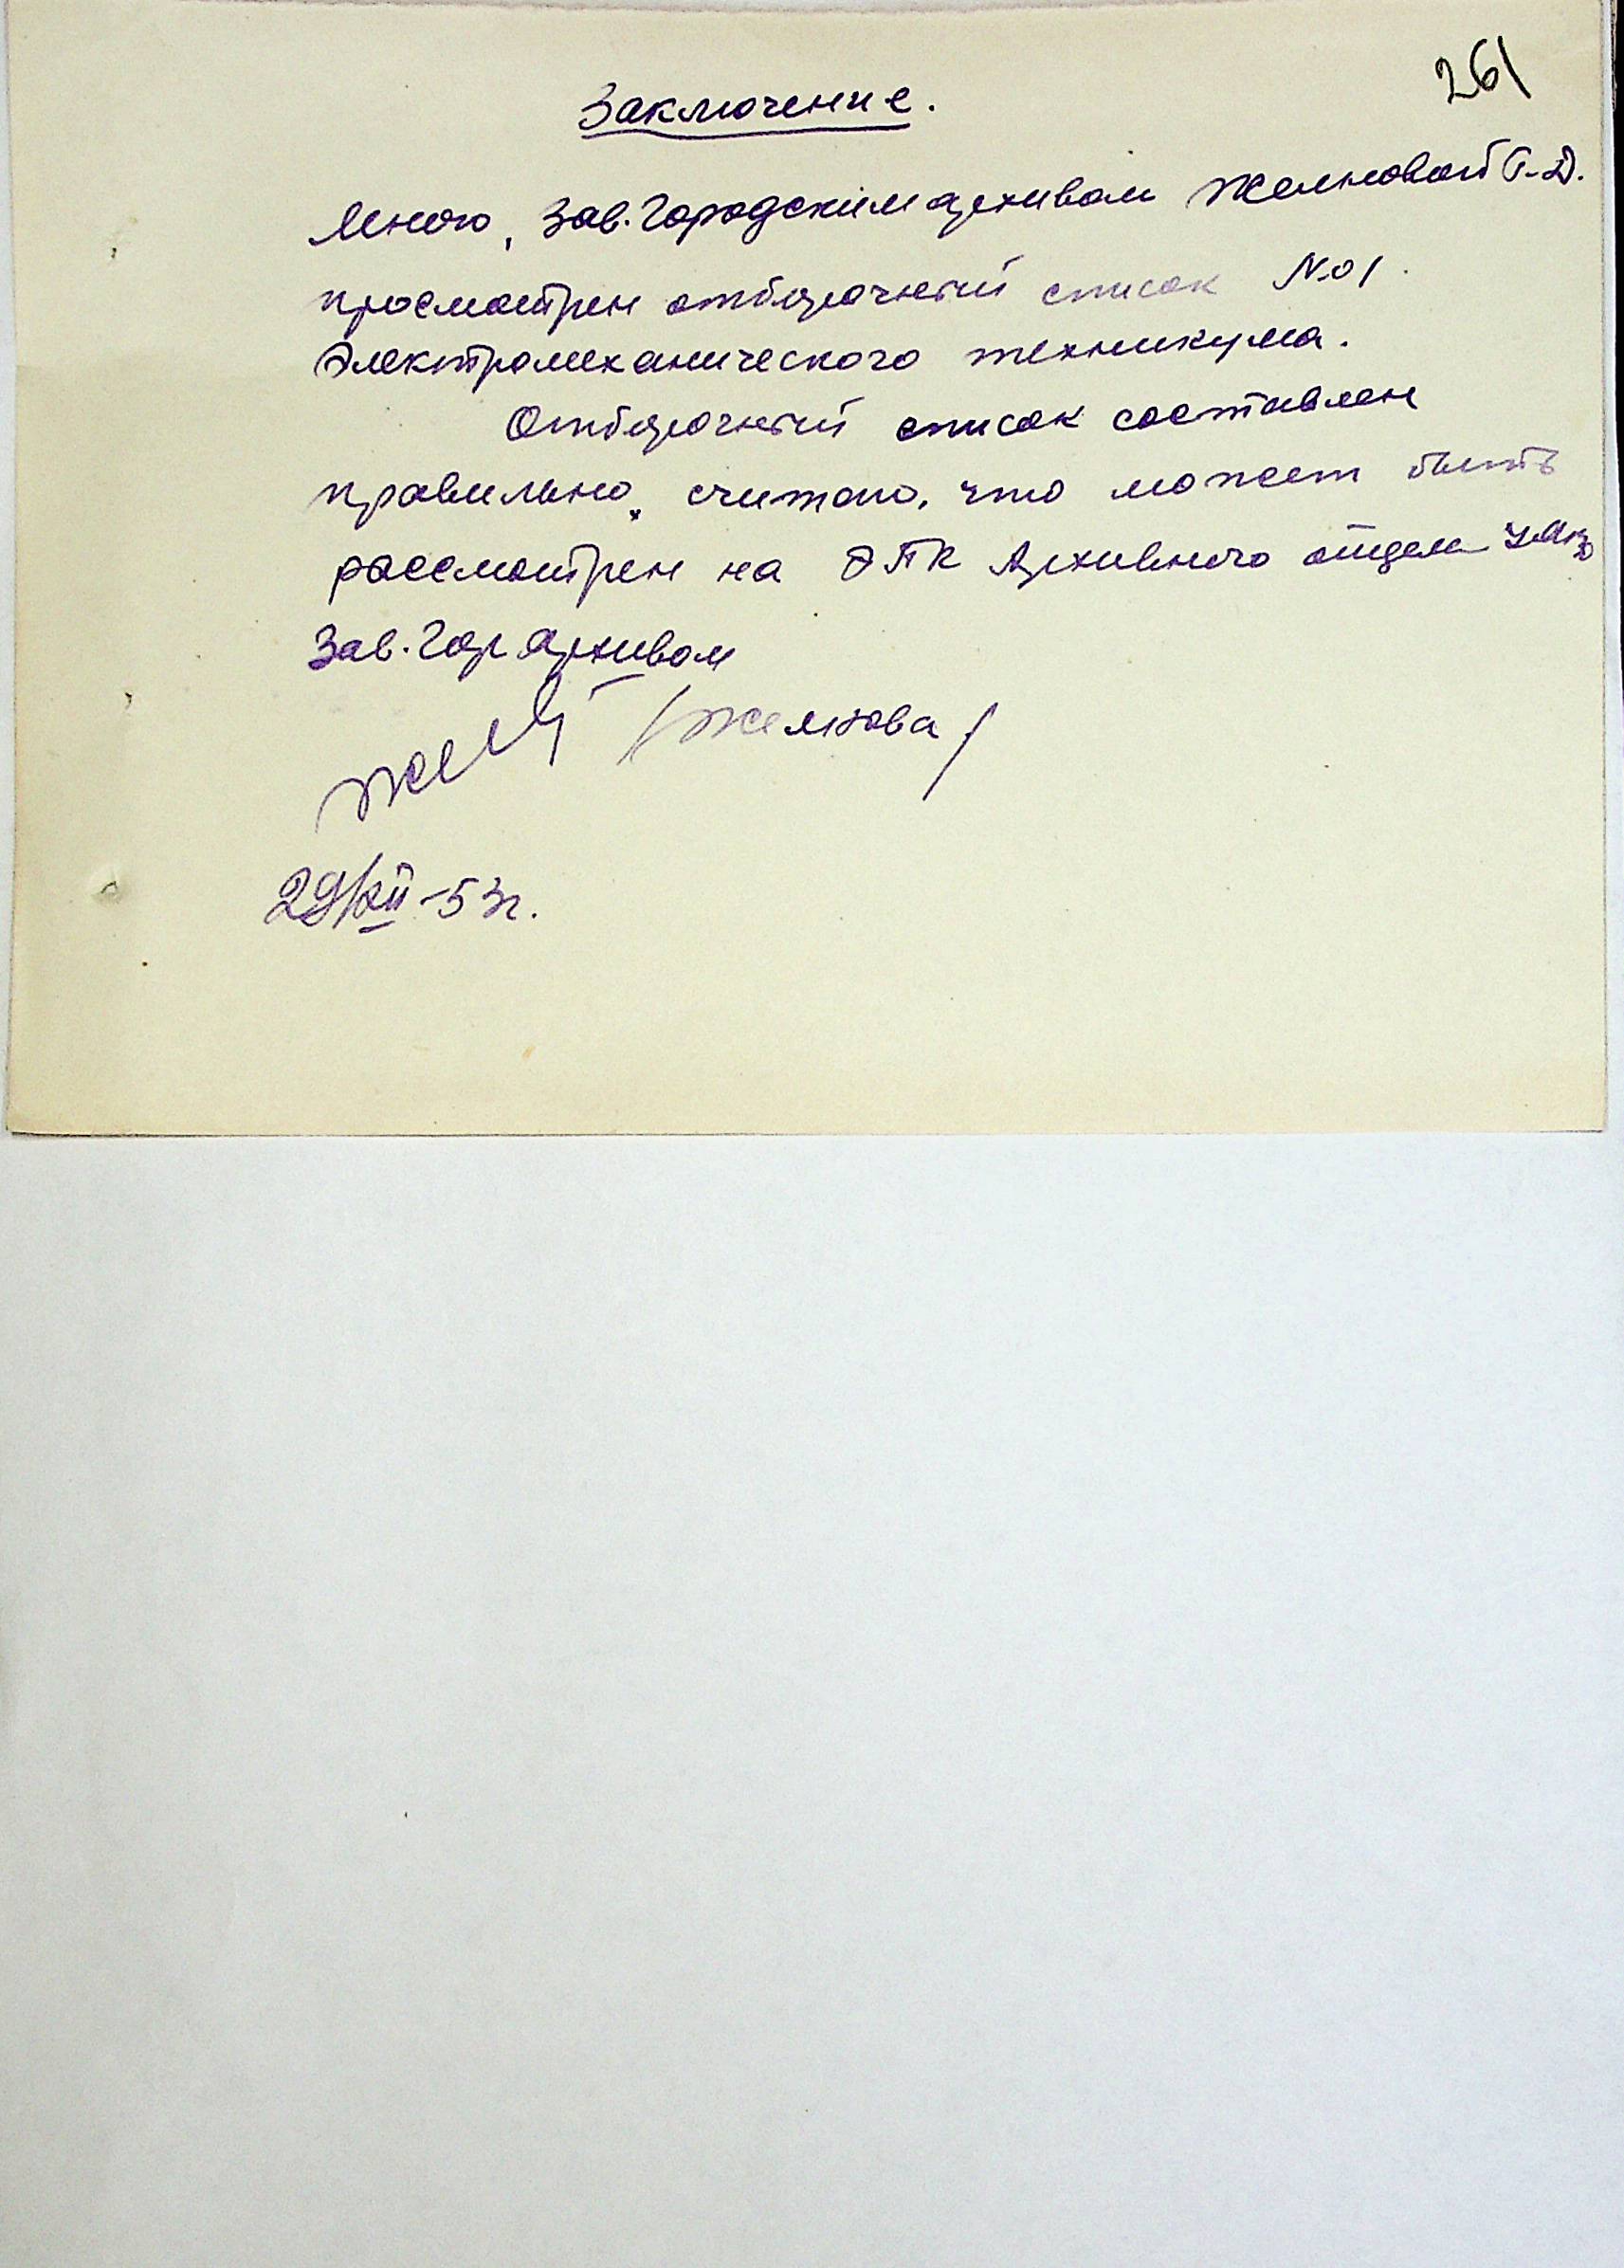 261
Заключение.
Мною, Зав. Городским архивом Желновой Г.Д.
просмотрен отборочный список №1
Электромеханического техникума.
Отборочный список составлен
правильно, считаю, что может быть
рассмотрен на ЭПК Архивного отдела
Зав. Гор архивом
/Желнова/
29/XII-53г.